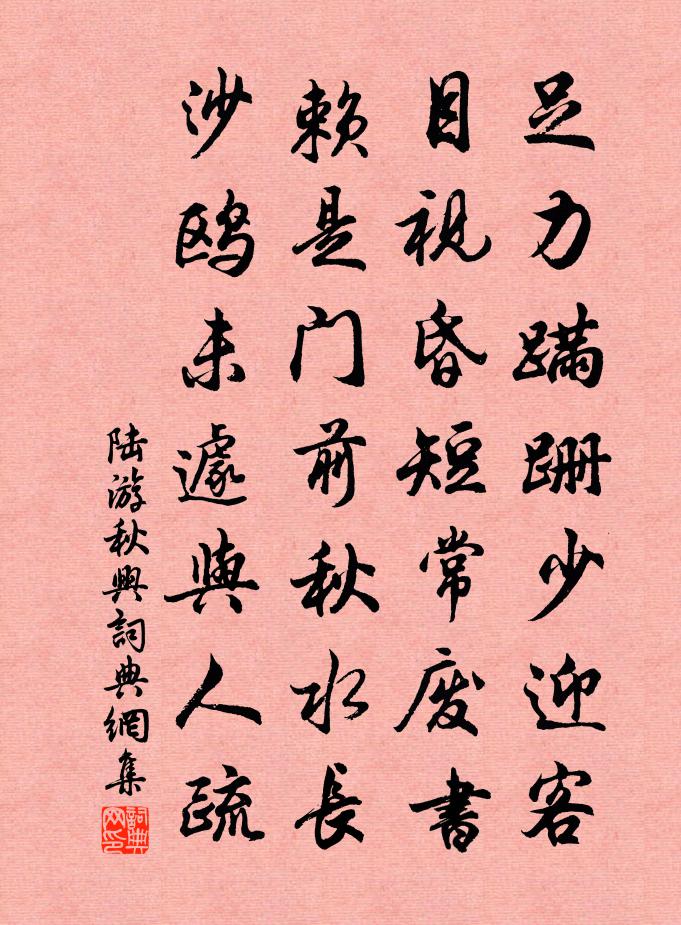 足力蹒跚少迎客
目视昏短常废书
赖是门前秋水长
沙鸥未遽與人疏
陆游秋興詞典網集
詞典网印